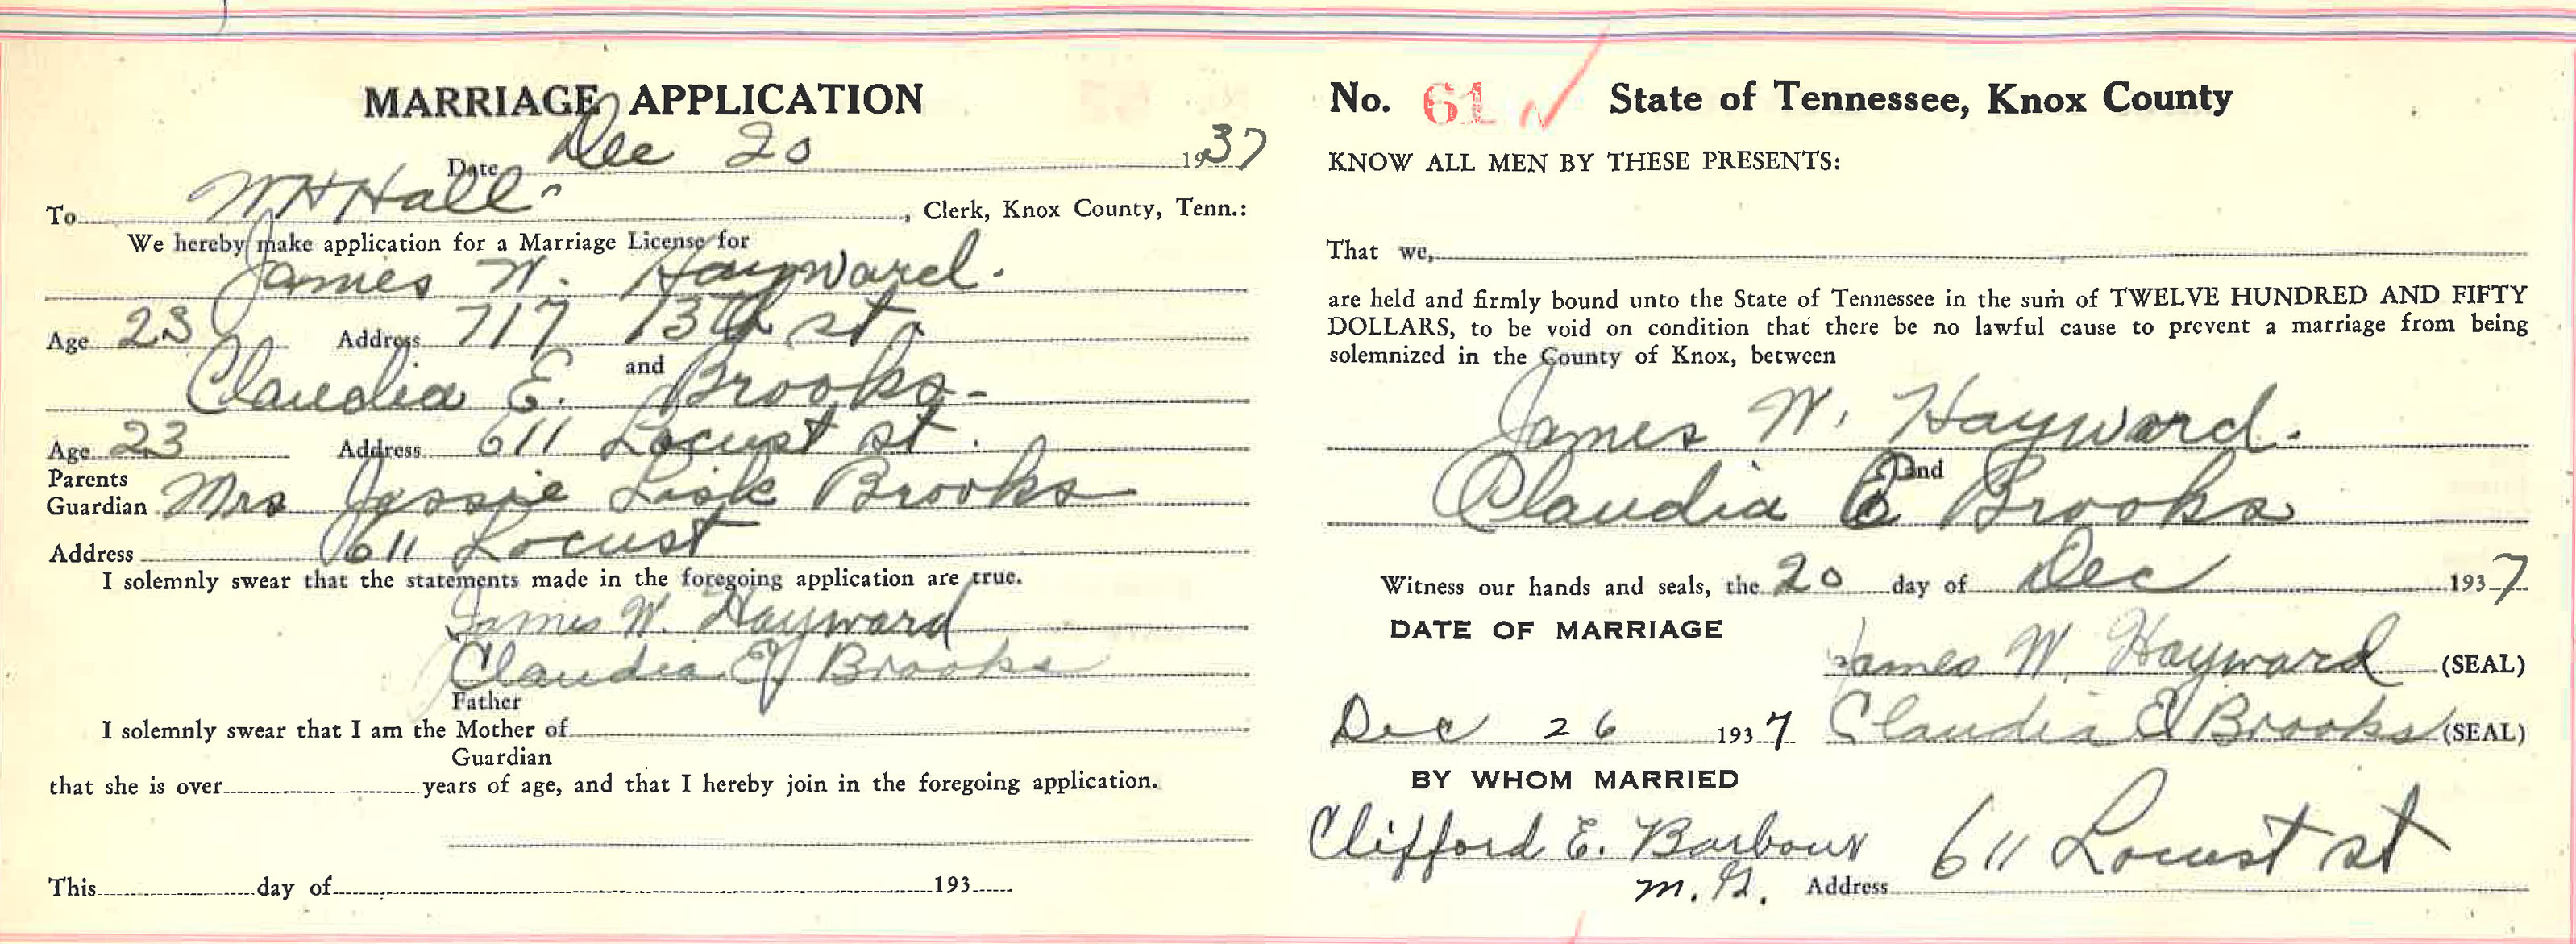 MARRIAGE APPLICATION
Date Dec 20 1937
To W H Hall, Clerk, Knox County, Tenn.:
We hereby make application for a Marriage License for
James W. Hayward.
Age 23 Address 717 13th st.
and
Claudia E. Brooks-
Age 23 Address 611 Locust st.
Parents
Guardian Mrs Jessie Lisk Brooks
Address 611 Locust
I solemnly swear that the statements made in the foregoing application are true.
James W. Hayward
Claudia E. Brooks
Father
I solemnly swear that I am the Mother of
Guardian
that she is over years of age, and that I hereby join in the foregoing application.
This day of 193
No. 61 State of Tennessee, Knox County
KNOW ALL MEN BY THESE PRESENTS:
That we,
are held and firmly bound unto the State of Tennessee in the sum of TWELVE HUNDRED AND FIFTY
DOLLARS, to be void on condition that there be no lawful cause to prevent a marriage from being
solemnized in the County of Knox, between
James W. Hayward.
and
Claudia E Brooks
Witness our hands and seals, the 20 day of Dec 1937
DATE OF MARRIAGE
James W. Hayward (SEAL)
Dec 26 1937
Claudia E Brooks (SEAL)
BY WHOM MARRIED
Clifford E. Barbour
M. G.
Address 611 Locust st